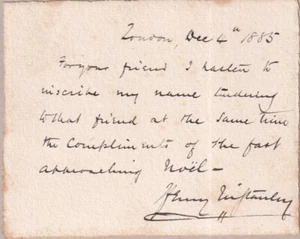 London, Dec 4th 1885
For your friend I hasten to
inscribe my name tendering
to that friend at the same time
the Compliments of the fast
approaching Noël —
Henry